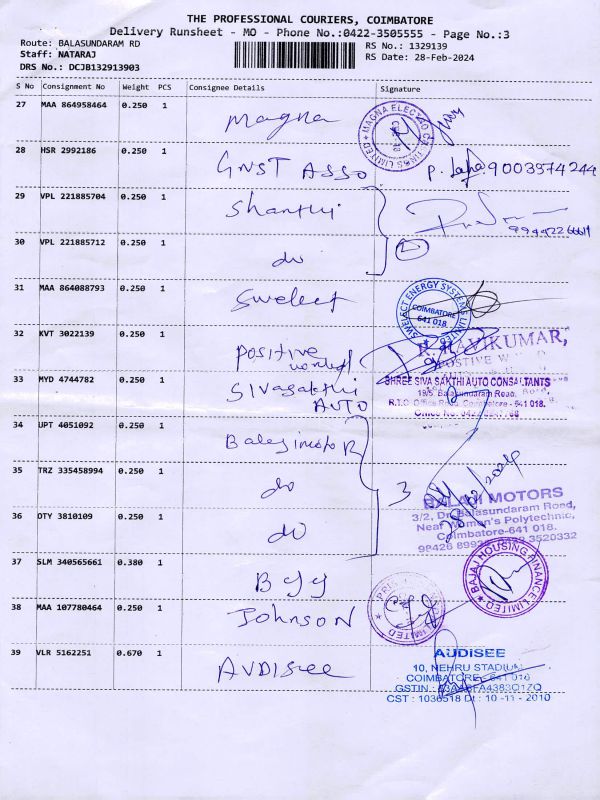 THE PROFESSIONAL COURIERS, COIMBATORE
Delivery Runsheet - MO - Phone No.:0422-3505555 - Page No.:3
Route: BALASUNDARAM RD
RS No.: 1329139
Staff: NATARAJ
RS Date: 28-Feb-2024
DRS No.: DCJB132913903
S No Consignment No Weight PCS Consignee Details Signature
27 MAA 864958464 0.250 1 Magna
28 HSR 2992186 0.250 1 GNST ASSO P. 9003974244
29 VPL 221885704 0.250 1 Shanthi
30 VPL 221885712 0.250 1 do 2
31 MAA 864088793 0.250 1 Swelect
SWELECT ENERGY SYSTEMS LIMITED
COIMBATORE
641 018
32 KVT 3022139 0.250 1 Positive
RAVIKUMAR,
33 MYD 4744782 0.250 1 Sivasakthi
AUTO
SHREE SIVA SAKTHI AUTO CONSULTANTS
19/5, Balasundaram Road,
R.T.O. Office Road, Coimbatore - 641 018.
34 UPT 4051092 0.250 1
35 TRZ 335458994 0.250 1 do 3
36 OTY 3810109 0.250 1 do
BALAJI MOTORS
3/2, Dr. Balasundaram Road,
Near Woman's Polytechnic,
Coimbatore-641 018.
37 SLM 340565661 0.380 1
BAJAJ HOUSING FINANCE LIMITED
38 MAA 107780464 0.250 1 Johnson
39 VLR 5162251 0.670 1 AUDISee
AUDISEE
10, NEHRU STADIUM
COIMBATORE - 641 018
CST : 1036518 Dt : 10 -11 - 2010